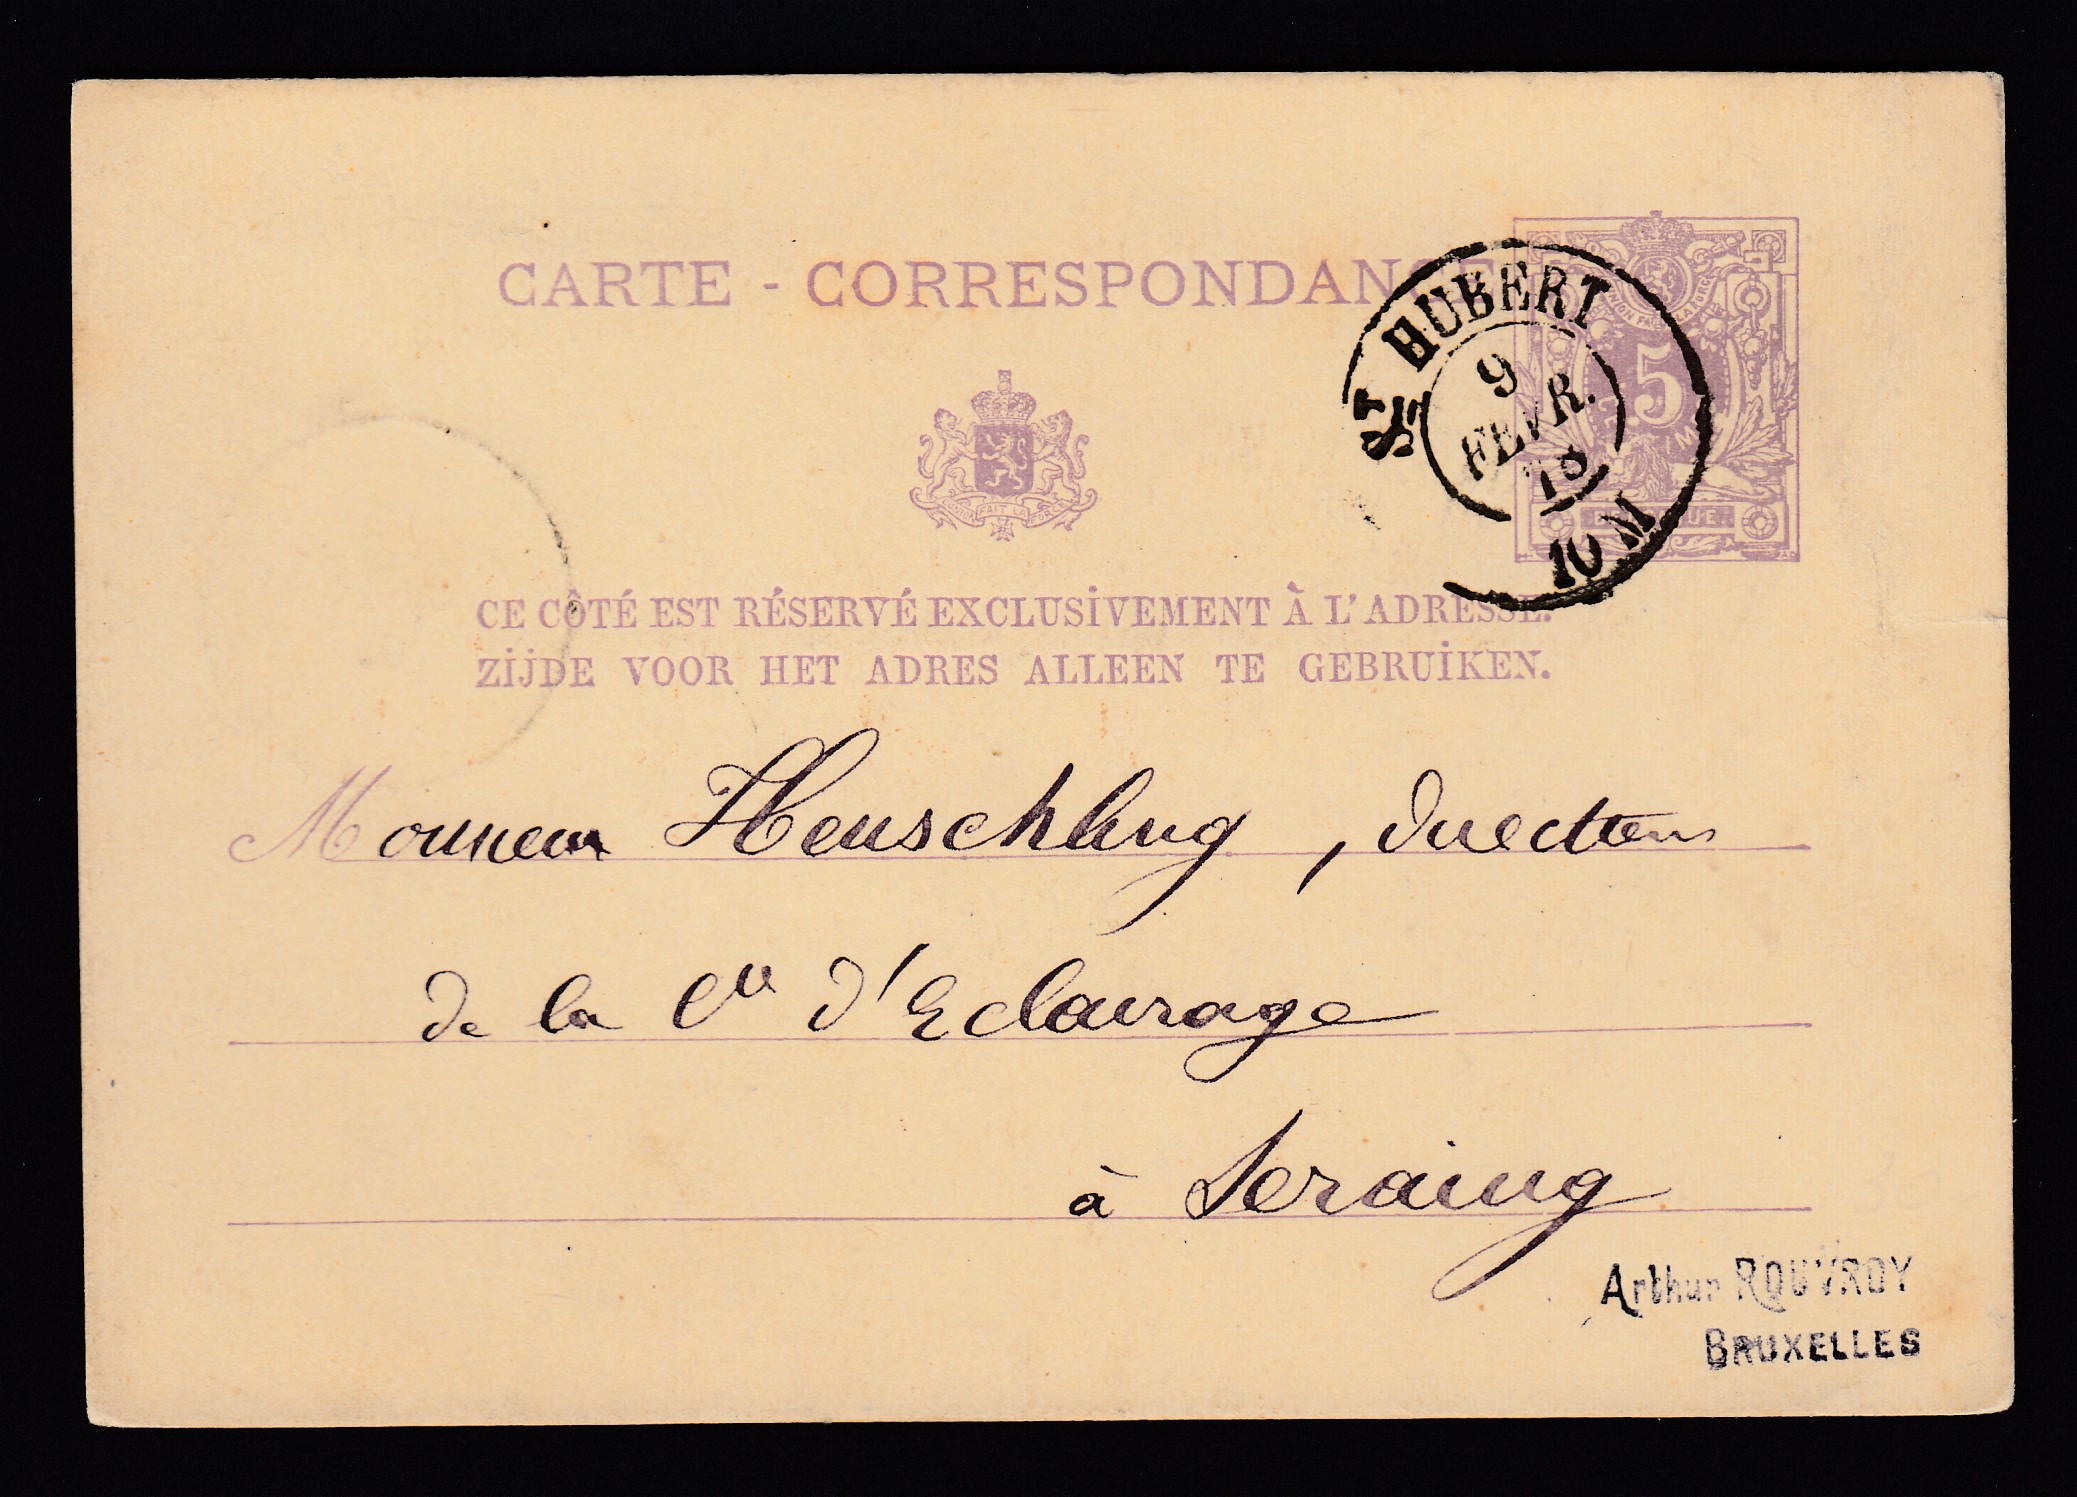 CARTE - CORRESPONDANCE
ST HUBERT
9
FEVR.
10 M
5
UNION FAIT LA FORCE
CE CÔTÉ EST RÉSERVÉ EXCLUSIVEMENT À L'ADRESSE.
ZIJDE VOOR HET ADRES ALLEEN TE GEBRUIKEN.
Monsieur Heuschling, directeur
de la Cie d'Eclairage
à Seraing
Arthur ROUVROY
BRUXELLES